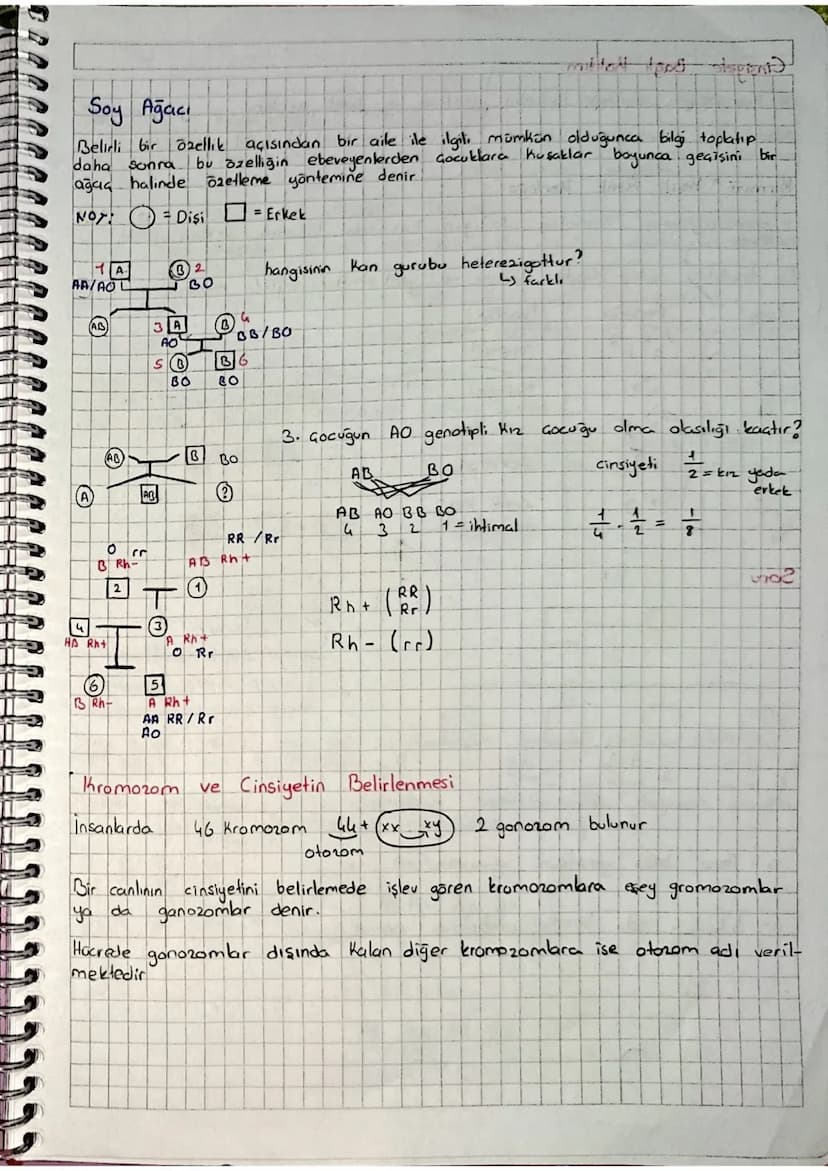 Soy Ağacı
Belirli bir özellik açısından bir aile ile ilgili mümkün olduğunca bilgi toplatıp
daha sonra bu özelliğin ebeveyenlerden çocuklara kuşaklar boyunca geçişini bir
ağaç halinde özetleme yöntemine denir.
NOT: = Dişi = Erkek
1 A B 2 hangisinin kan gurubu heterezigottur?
AA/AO BO ↳ farklı
AB 3 A B 4
AO BB/BO
5 B B 6
BO BO
3. çocuğun AO genotipli kız çocuğu olma olasılığı kaçtır?
AB B BO AB BO cinsiyeti 1/2 = kız yada
erkek
A AB ?
AB AO BB BO
4 3 2 1 = ihtimal 1/4 . 1/2 = 1/8
RR / Rr
O rr
B Rh- AB Rh+
2 1
Rh + (RR Rr)
4 3
AB Rh+ A Rh+ Rh - (rr)
O Rr
6 5
B Rh- A Rh+
AA RR / Rr
AO
Kromozom ve Cinsiyetin Belirlenmesi
İnsanlarda 46 Kromozom 44 + (xx xy) 2 gonozom bulunur
otozom
Bir canlının cinsiyetini belirlemede işlev gören kromozomlara eşey gromozomlar
ya da ganozomlar denir.
Hücrede gonozomlar dışında kalan diğer kromozomlara ise otozom adı veril-
mektedir